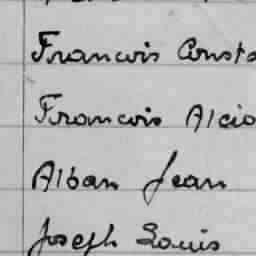 Francois Const
Francois Alcid
Alban Jean
Joseph Louis